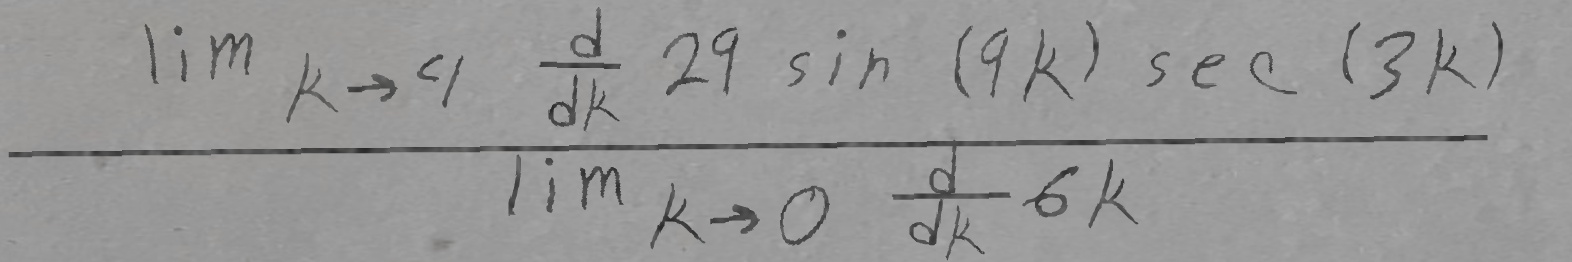 lim k→4 d/dk 29 sin (9k) sec (3k)
lim k→0 d/dk 6k